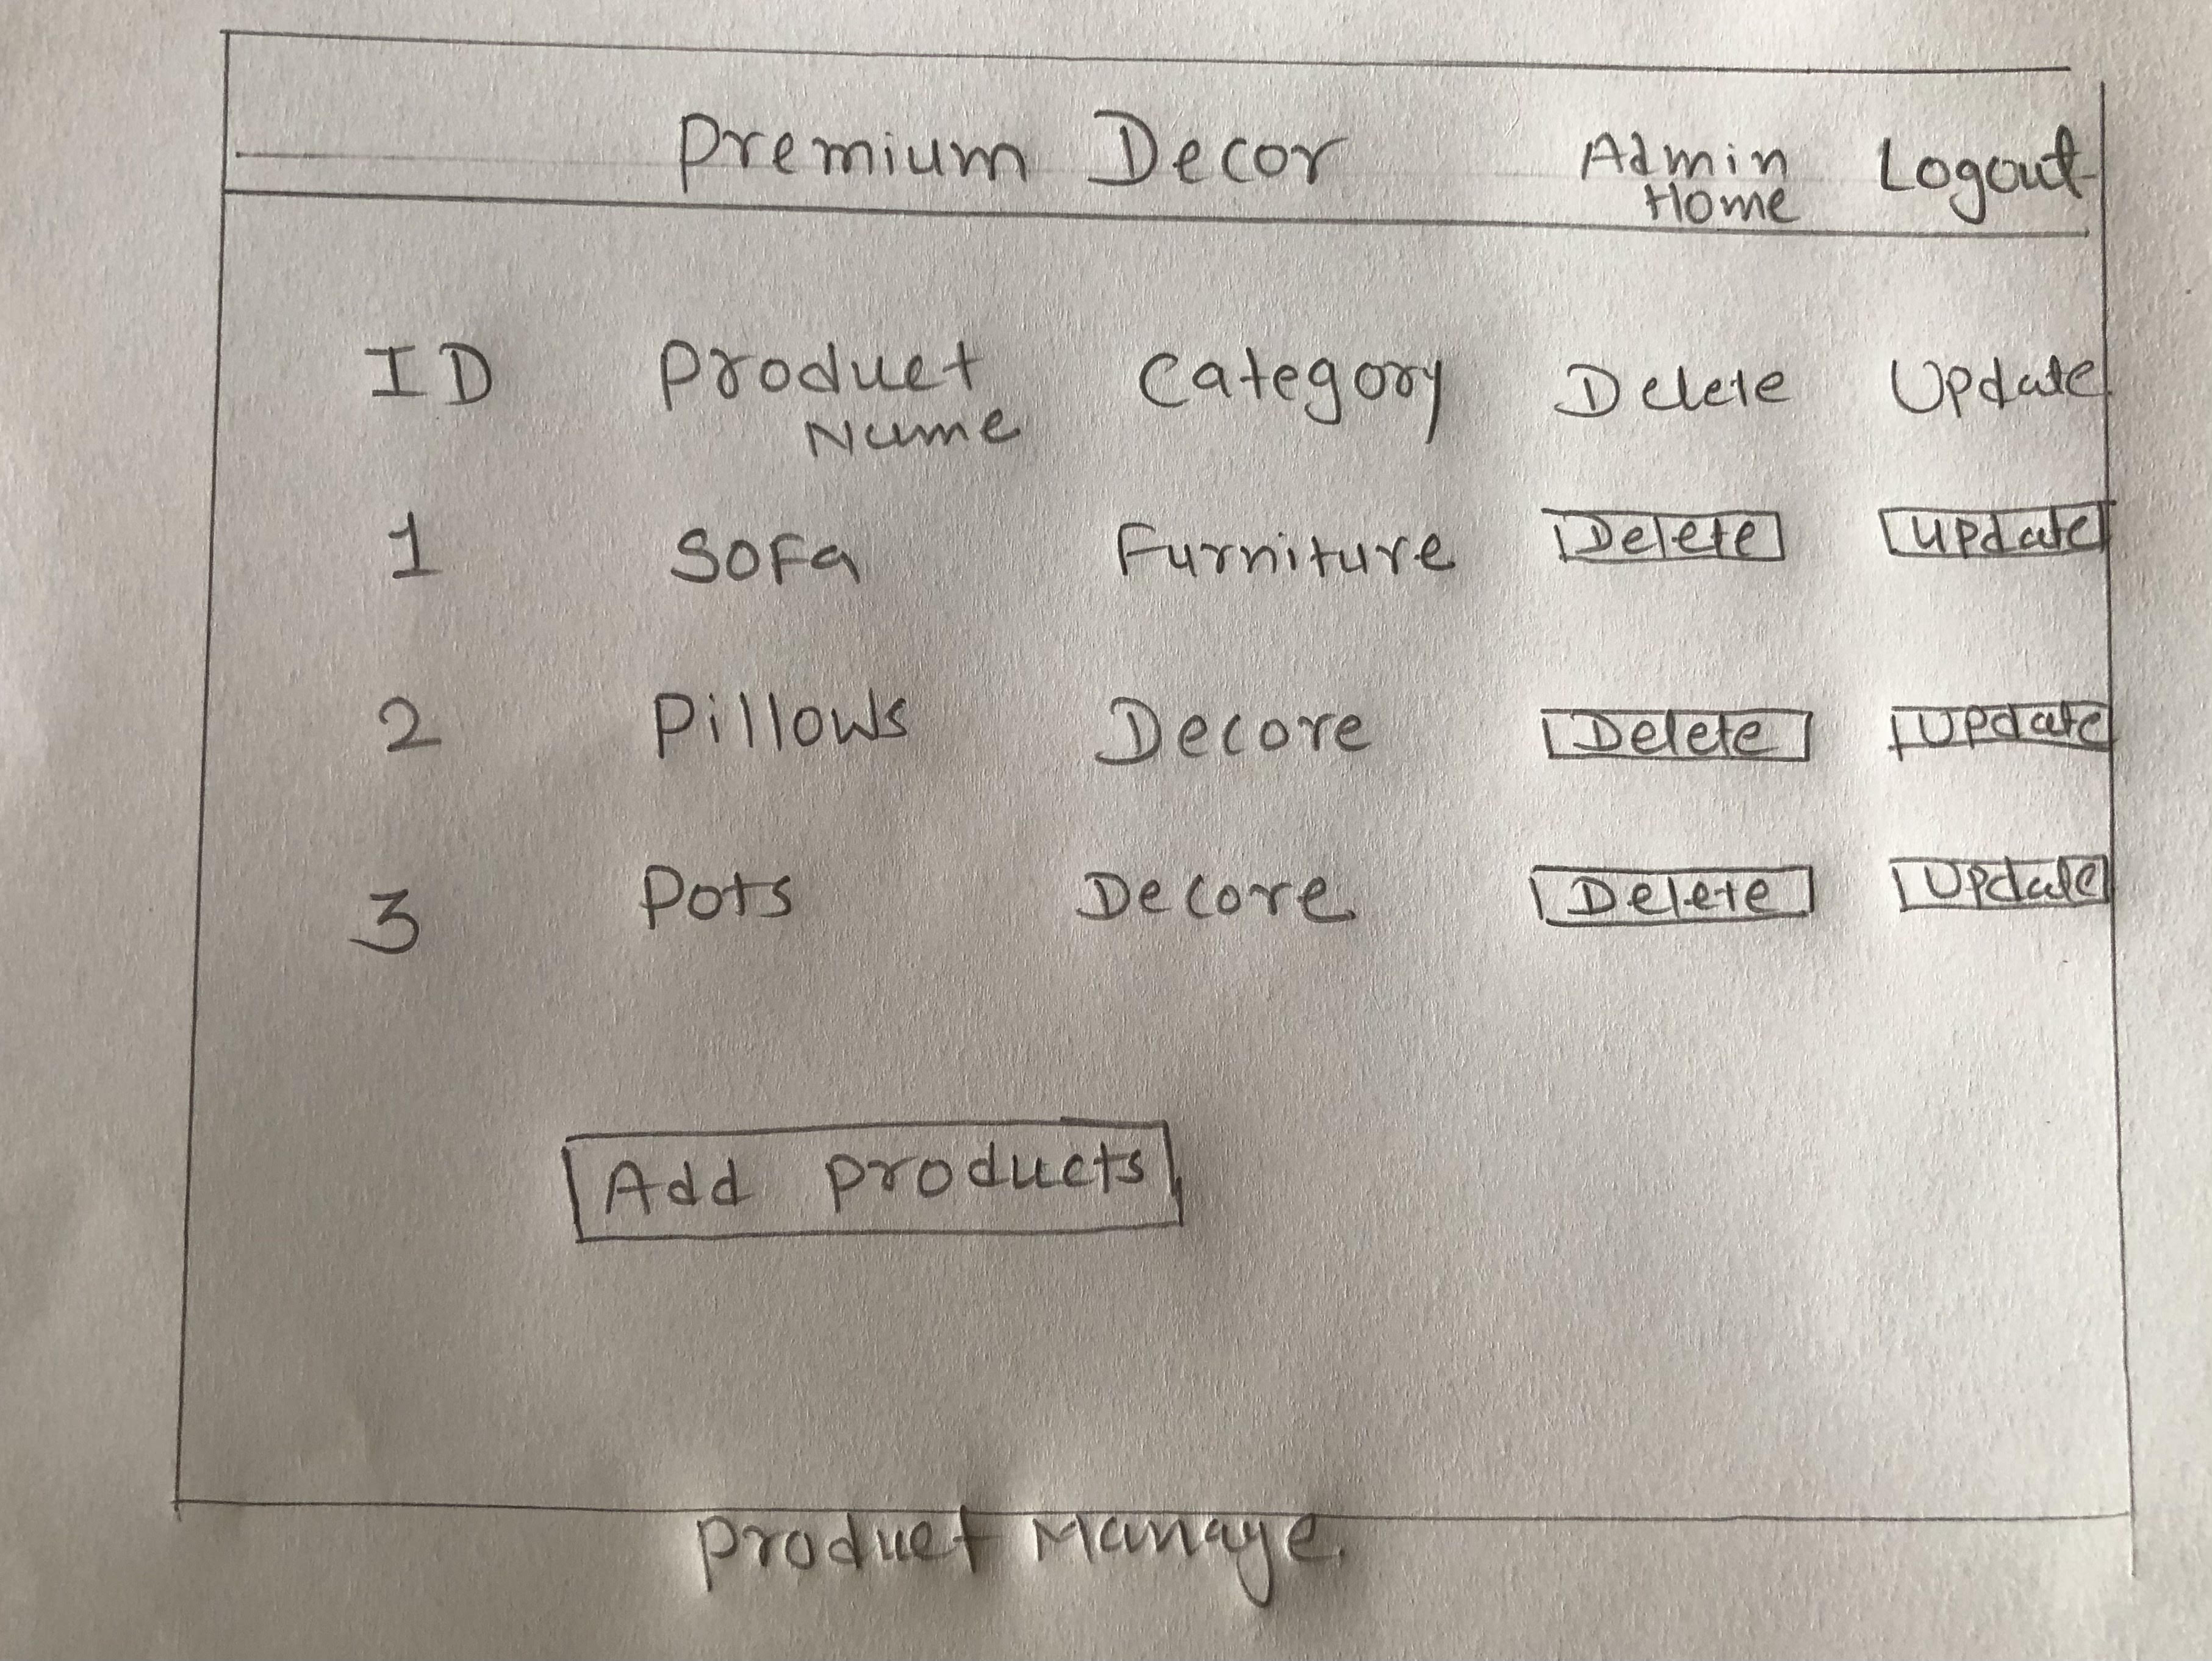 Premium Decor Admin Home Logout
ID Product Name Category Delete Update
1 Sofa Furniture Delete Update
2 Pillows Decore Delete Update
3 Pots Decore Delete Update
Add products
Product Manage.